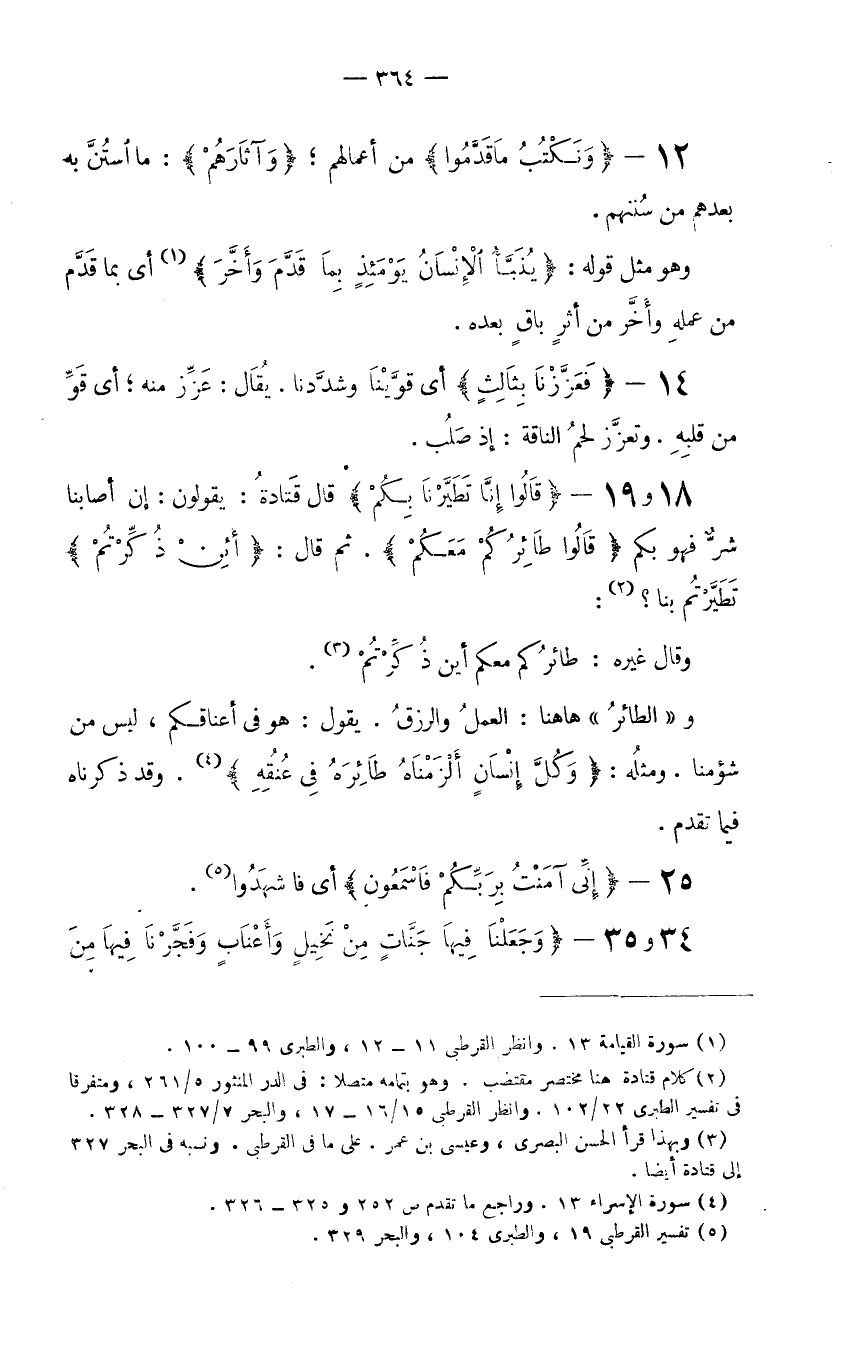 — ٣٦٤ —
١٢ — ﴿ وَنَكْتُبُ مَاقَدَّمُوا﴾ من أعمالهم ؛ ﴿ وَآثَارَهُمْ ﴾ : ما ٱستُنَّ به
بعدهم من سُننهم .
وهو مثل قوله : ﴿ يُنَبَّأُ ٱلْإِنْسَانُ يَوْمَئِذٍ بِمَا قَدَّمَ وَأَخَّرَ ﴾ (١) أى بما قدَّم
من عملهِ وأَخَّر من أثرٍ باقٍ بعده .
١٤ — ﴿ فَعَزَّزْنَا بِثَالِثٍ ﴾ أى قوَّيْنَا وشدَّدنا . يُقَال : عَزِّز منه ؛ أى قَوِّ
من قلبِهِ . وتعزَّز لحمُ الناقة : إذ صَلُب .
١٨ و ١٩ — ﴿ قَالُوا إِنَّا تَطَيَّرْنَا بِكُمْ ﴾ قال قَتادةُ : يقولون : إن أصابنا
شرٌّ فهو بكم ﴿ قَالُوا طَائِرُكُمْ مَعَكُمْ ﴾ . ثم قال : ﴿ أَئِنْ ذُكِّرْتُمْ ﴾
تَطَيَّرْتُم بنا ؟ (٢) :
وقال غيره : طائرُكم معكم أين ذُكِّرْتُمْ (٣) .
و « الطائرُ » هاهنا : العملُ والرزقُ . يقول : هو فى أعناقكم ، ليس من
شؤمنا . ومثلُه : ﴿ وَكُلَّ إِنْسَانٍ أَلْزَمْنَاهُ طَائِرَهُ فِى عُنُقِهِ ﴾ (٤) . وقد ذكرناه
فيما تقدم .
٢٥ — ﴿ إِنِّى آمَنْتُ بِرَبِّكُمْ فَاسْمَعُونِ ﴾ أى فاشهَدُوا (٥) .
٣٤ و ٣٥ — ﴿ وَجَعَلْنَا فِيهَا جَنَّاتٍ مِنْ نَخِيلٍ وَأَعْنَابٍ وَفَجَّرْنَا فِيهَا مِنَ
(١) سورة القيامة ١٣ . وانظر القرطبى ١١ — ١٢ ، والطبرى ٩٩ — ١٠٠ .
(٢) كلام قتادة هنا مختصر مقتضب . وهو بتمامه متصلا : فى الدر المنثور ٥/٢٦١ ، ومتفرقا
فى تفسير الطبرى ٢٢/١٠٢ . وانظر القرطبى ١٥/١٦ — ١٧ ، والبحر ٧/٣٢٧ — ٣٢٨ .
(٣) وبهذا قرأ الحسن البصرى ، وعيسى بن عمر . على ما فى القرطبى . ونسبه فى البحر ٣٢٧
إلى قتادة أيضا .
(٤) سورة الإسراء ١٣ . وراجع ما تقدم ص ٢٥٢ و ٣٢٥ — ٣٢٦ .
(٥) تفسير القرطبى ١٩ ، والطبرى ١٠٤ ، والبحر ٣٢٩ .